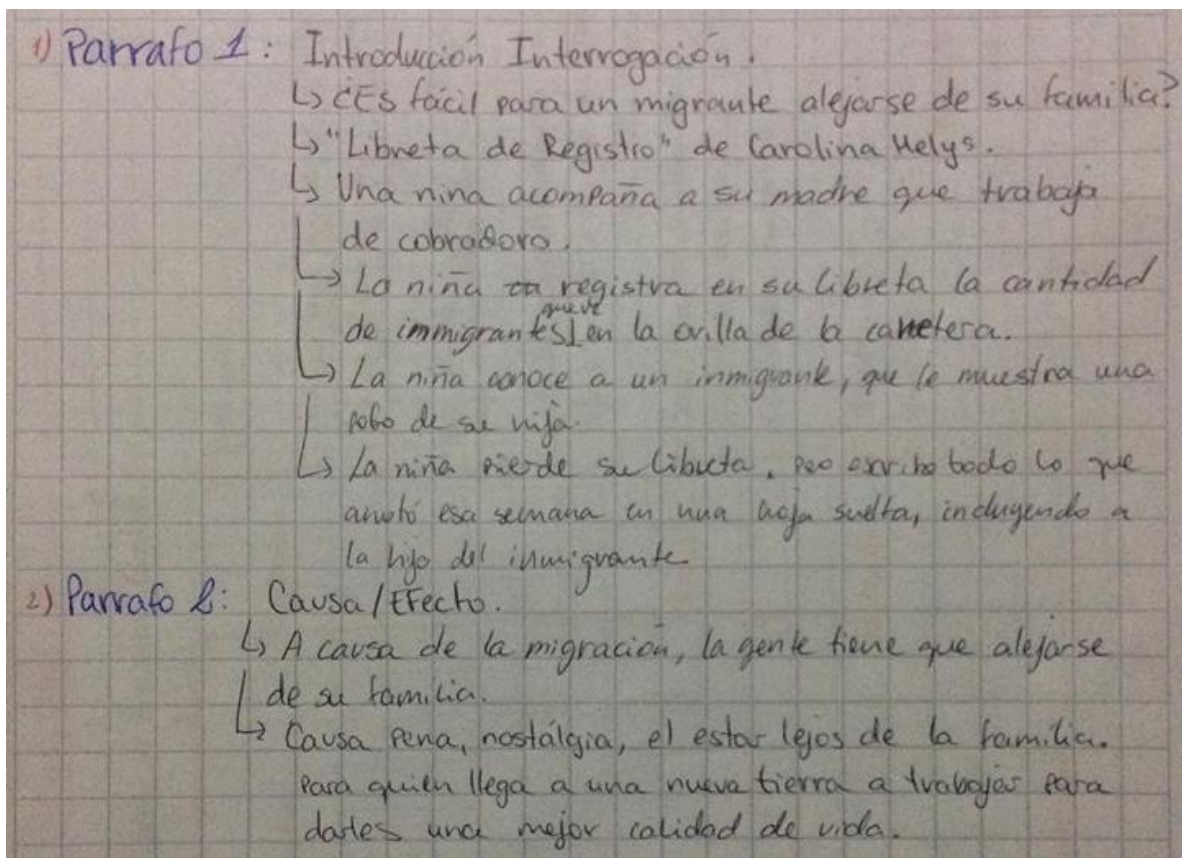 1) Parrafo 1: Introducción Interrogación.
↳ ¿Es fácil para un migrante alejarse de su familia?
↳ "Libreta de Registro" de Carolina Melys.
↳ Una nina acompaña a su madre que trabaja
de cobradora.
↳ La niña registra en su libreta la cantidad
de immigrantes que ve en la orilla de la carretera.
↳ La niña conoce a un inmigrante, que le muestra una
foto de su hija.
↳ La niña pierde su libreta, pero escribe todo lo que
anotó esa semana en una hoja suelta, incluyendo a
la hija del inmigrante
2) Parrafo 2: Causa/Efecto.
↳ A causa de la migración, la gente tiene que alejarse
de su familia.
↳ Causa pena, nostálgia, el estar lejos de la familia.
Para quien llega a una nueva tierra a trabajar para
darles una mejor calidad de vida.